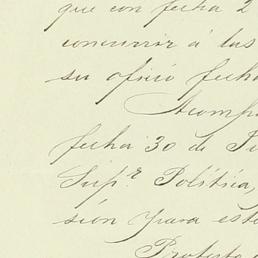 que con fecha 2
concurrir á las
su oficio fecha
Acomp
fecha 30 de
Sup.r Politica,
sión para este
Protesto